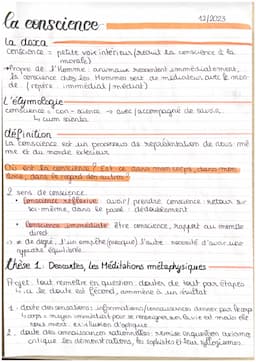 la conscience
12/2023
la doxa
conscience = petite voix intérieure (réduit la conscience à la
morale)
→ Propre de l'Homme : animaux ressentent immédiatement,
la conscience chez les Hommes sert de médiateur avec le mon-
de. (repère : immédiat / médiat)
L'étymologie
conscience = con-science → avec / accompagné de savoir
↳ cum scientia
définition
La conscience est un processus de représentation de nous mê
me et du monde extérieur
Où est la conscience ? Est ce dans mon corps, dans mon
âme, dans le regard des autres ?
2 sens de conscience
• conscience réflexive avoir / prendre conscience : retour sur
soi-même, dans le passé / dédoublement
• conscience immédiate être conscience, rapport au monde
direct
→ de degré, l'un empêche (presque) l'autre nécessité d'avoir un
équilibre
thèse 1 : Descartes, les Méditations métaphysiques
Projet : tout remettre en question : douter de tout par étapes
↳ si le doute est fécond, ammène à un résultat
1. doute des sensations : informations / connaissances données par le corps
nous ment. ex illusion d'optique
2. doute des connaissances rationnelles : remise en question axiome
critique les démonstrations, les sophistes et leurs syllogismes.